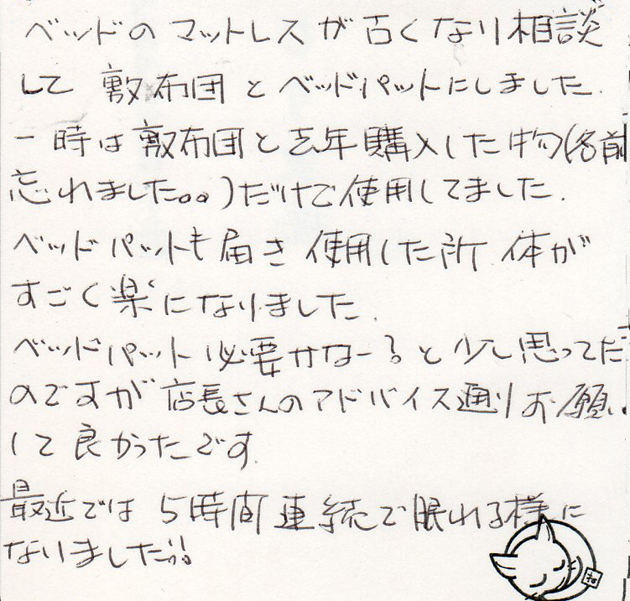 ベッドのマットレスが古くなり相談
して敷布団とベッドパットにしました.
一時は敷布団と去年購入した物(名前
忘れました。。)だけで使用してました.
ベッドパットも届き使用した所体が
すごく楽になりました.
ベッドパット必要かなー?と少し思ってた
のですが店長さんのアドバイス通りお願い
して良かったです.
最近では5時間連続で眠れる様に
なりました!!
和